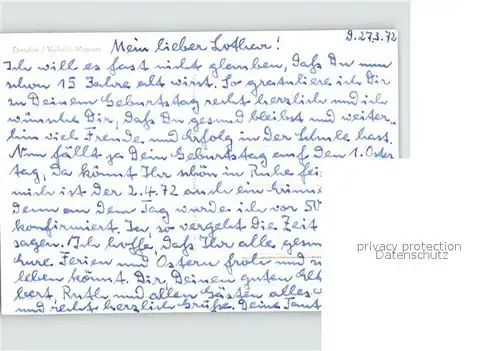 D. 27.3.72
Dresden / Verkehrs-Museum
Mein lieber Lothar!
Ich will es fast nicht glauben, daß Du nun
schon 15 Jahre alt wirst. So gratuliere ich Dir
zu Deinem Geburtstag recht herzlich und ich
wünsche Dir, daß Du gesund bleibst und weiter-
hin viel Freude und Erfolg in der Schule hast.
Nun fällt ja Dein Geburtstag auf den 1. Oster
tag, da könnt Ihr schön in Ruhe fei
mich ist der 2.4.72 auch ein Erinne
denn an dem Tag wurde ich vor 50
konfirmiert. Ja, so vergeht die Zeit
sagen. Ich hoffe, daß Ihr alle gesun
Eure Ferien und Ostern froh und
leben könnt. Dir, Deinen guten Elt
bert, Ruth und allen Gästen alles
und recht herzliche Grüße. Deine Tant
privacy protection
Datenschutz